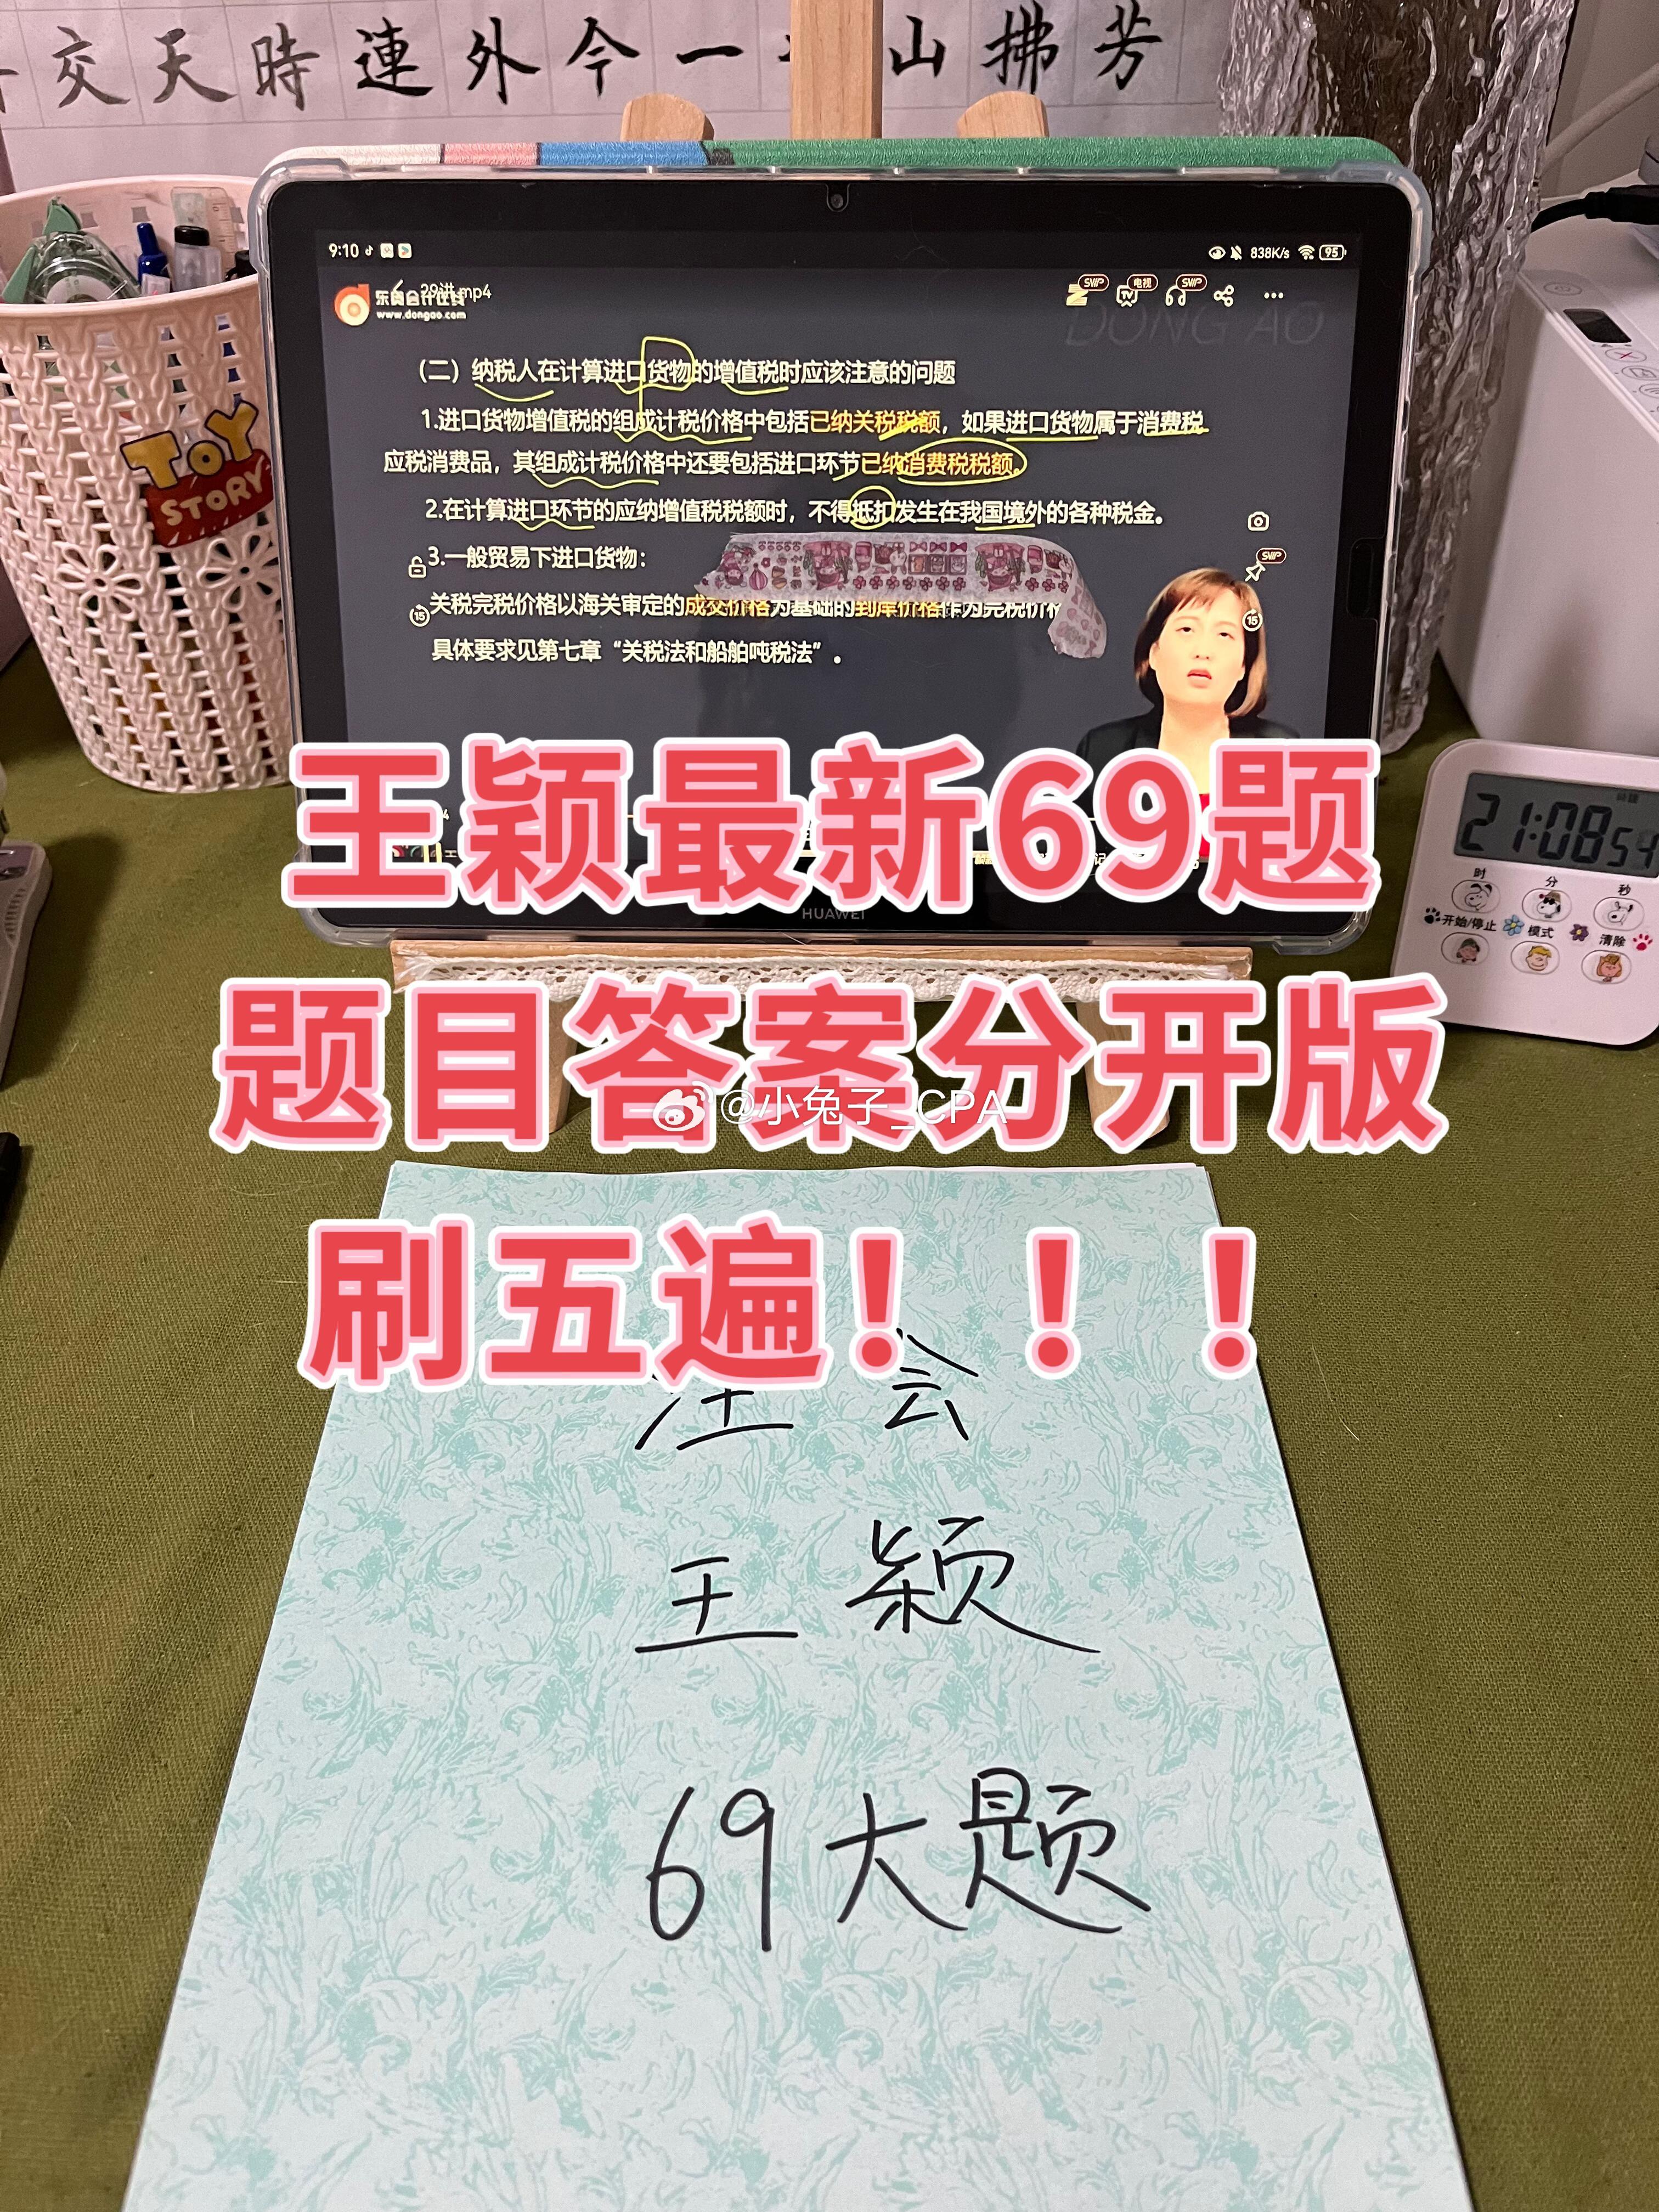 交天時連外今一山拂芳
9:10
838K/s
95
29讲.mp4
www.dongao.com
SVIP
电视
SVIP
DONG AO
（二）纳税人在计算进口货物的增值税时应该注意的问题
1.进口货物增值税的组成计税价格中包括已纳关税税额，如果进口货物属于消费税
应税消费品，其组成计税价格中还要包括进口环节已纳消费税税额。
2.在计算进口环节的应纳增值税税额时，不得抵扣发生在我国境外的各种税金。
3.一般贸易下进口货物：
SVIP
关税完税价格以海关审定的成交价格为基础的到岸价格作为完税价格
15
15
具体要求见第七章“关税法和船舶吨税法”。
TOY
STORY
王颖最新69题
HUAWEI
21:08 54
时 分 秒
开始/停止 模式 清除
题目答案分开版
@小兔子_CPA
刷五遍！！！
注会
王颖
69大题